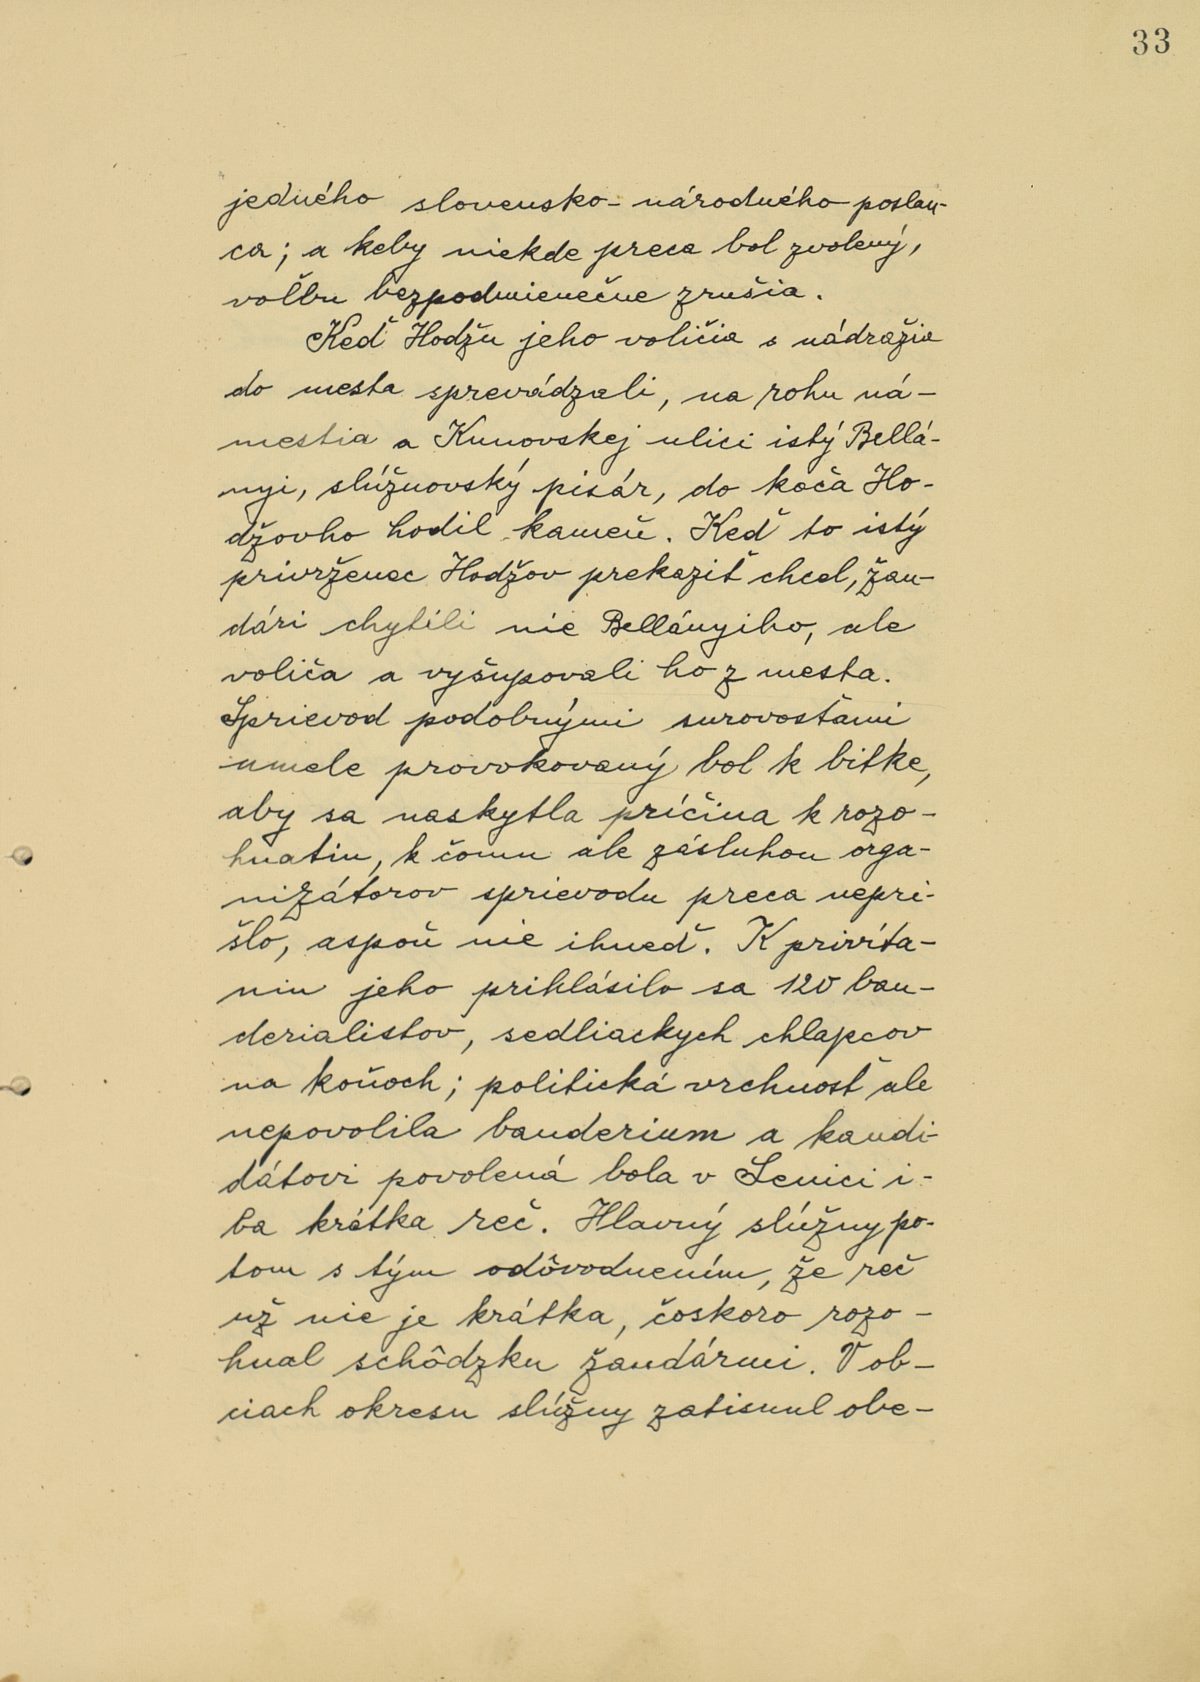 33
jedného slovensko-národného poslan-
ca; a keby niekde preca bol zvolený,
voľbu bezpodmienečne zrušia.
Keď Hodžu jeho voličia s nádražia
do mesta sprevádzali, na rohu ná-
mestia a Kunovskej ulici istý Bellá-
nyi, slúžnovský pisár, do koča Ho-
džovho hodil kameň. Keď to istý
privrženec Hodžov prekaziť chcel, žan-
dári chytili nie Bellányiho, ale
voliča a vyšupovali ho z mesta.
Sprievod podobnými surovosťami
umele provokovaný bol k bitke,
aby sa naskytla príčina k rozo-
hnatiu, k čomu ale zásluhou orga-
nizátorov sprievodu preca nepri-
šlo, aspoň nie ihneď. K privíta-
niu jeho prihlásilo sa 120 ban-
derialistov, sedliackych chlapcov
na koňoch; politická vrchnosť ale
nepovolila banderium a kandi-
dátovi povolená bola v Senici i-
ba krátka reč. Hlavný slúžny po-
tom s tým odôvodnením, že reč
už nie je krátka, čoskoro rozo-
hnal schôdzku žandármi. V ob-
ciach okresu slúžny zatisnul obe-